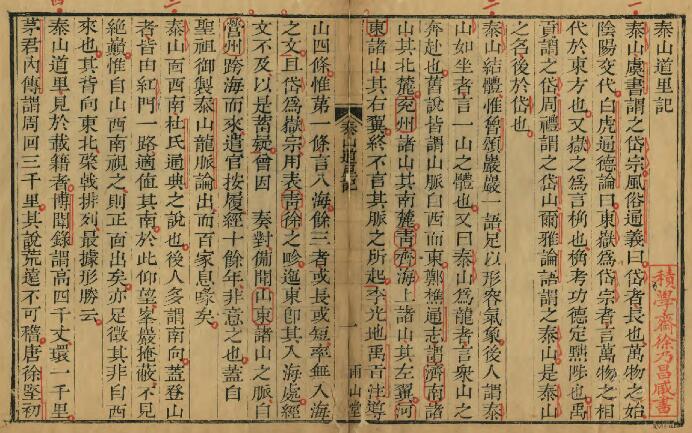 泰山道里記
泰山虞書謂之岱宗風俗通義曰岱者長也萬物之始
陰陽交代白虎通德論曰東嶽為岱宗者言萬物之相
代於東方也又嶽之為言桷也桷考功德定黜陟也禹
貢謂之岱周禮謂之岱山爾雅論語謂之泰山是泰山
之名後於岱也
泰山結體惟魯頌巖巖一語足以形容氣象後人謂泰
山如坐者言一山之體也又曰泰山為龍者言衆山之
奔赴也舊說皆謂山脈自西而東鄭樵通志謂濟南諸
山其北麓兗州諸山其南麓青齊海上諸山其左翼河
東諸山其右翼終不言其脈之所起李光地禹貢注導
山四條惟第一條言入海餘三者或長或短率無入海
之文且岱為嶽宗用表青徐之畛迤東卽其入海處經
文不及以是蓄疑曾因 奏對備聞山東諸山之脈自
營州跨海而來遣官按履經十餘年非意之也蓋自
聖祖御製泰山龍脈論出而百家息喙矣
泰山面西南杜氏通典之說也後人多謂南向蓋登山
者皆由紅門一路適值其南於此仰望客巖掩蔽不見
絕巓惟自山西南視之則正面出矣亦足徵其非自西
來也其背向東北棨戟排列最據形勝云
泰山道里見於載籍者博聞錄謂高四千丈環一千里
茅君內傳謂周回三千里其說荒遠不可稽唐徐堅初
泰山道里記
一
雨山堂
積學齋徐乃昌藏書